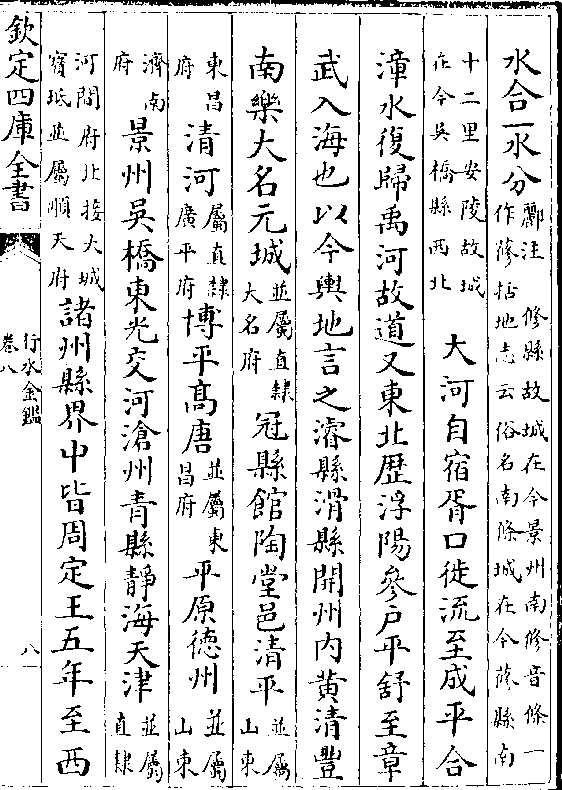 水合一水分酈注 修縣故城在今景州南修音條一
作蓨括地志云俗名南條城在今蓨縣南
十二里安陵故城
在今吳橋縣西北 大河自宿胥口徙流至成平合
漳水復歸禹河故道又東北歴浮陽參户平舒至章
武入海也以今輿地言之濬縣滑縣開州内黄清豐
南樂大名元城並屬直隸
大名府冠縣館陶堂邑清平並屬
山東
東昌
府清河屬直隸
廣平府博平髙唐並屬東
昌府平原德州並屬
山東
濟南
府景州吳橋東光交河滄州青縣靜海天津並屬
直隸
河間府北接大城
寳坻並屬順天府諸州縣界中皆周定王五年至西
欽定四庫全書
行水金鑑
卷八
八